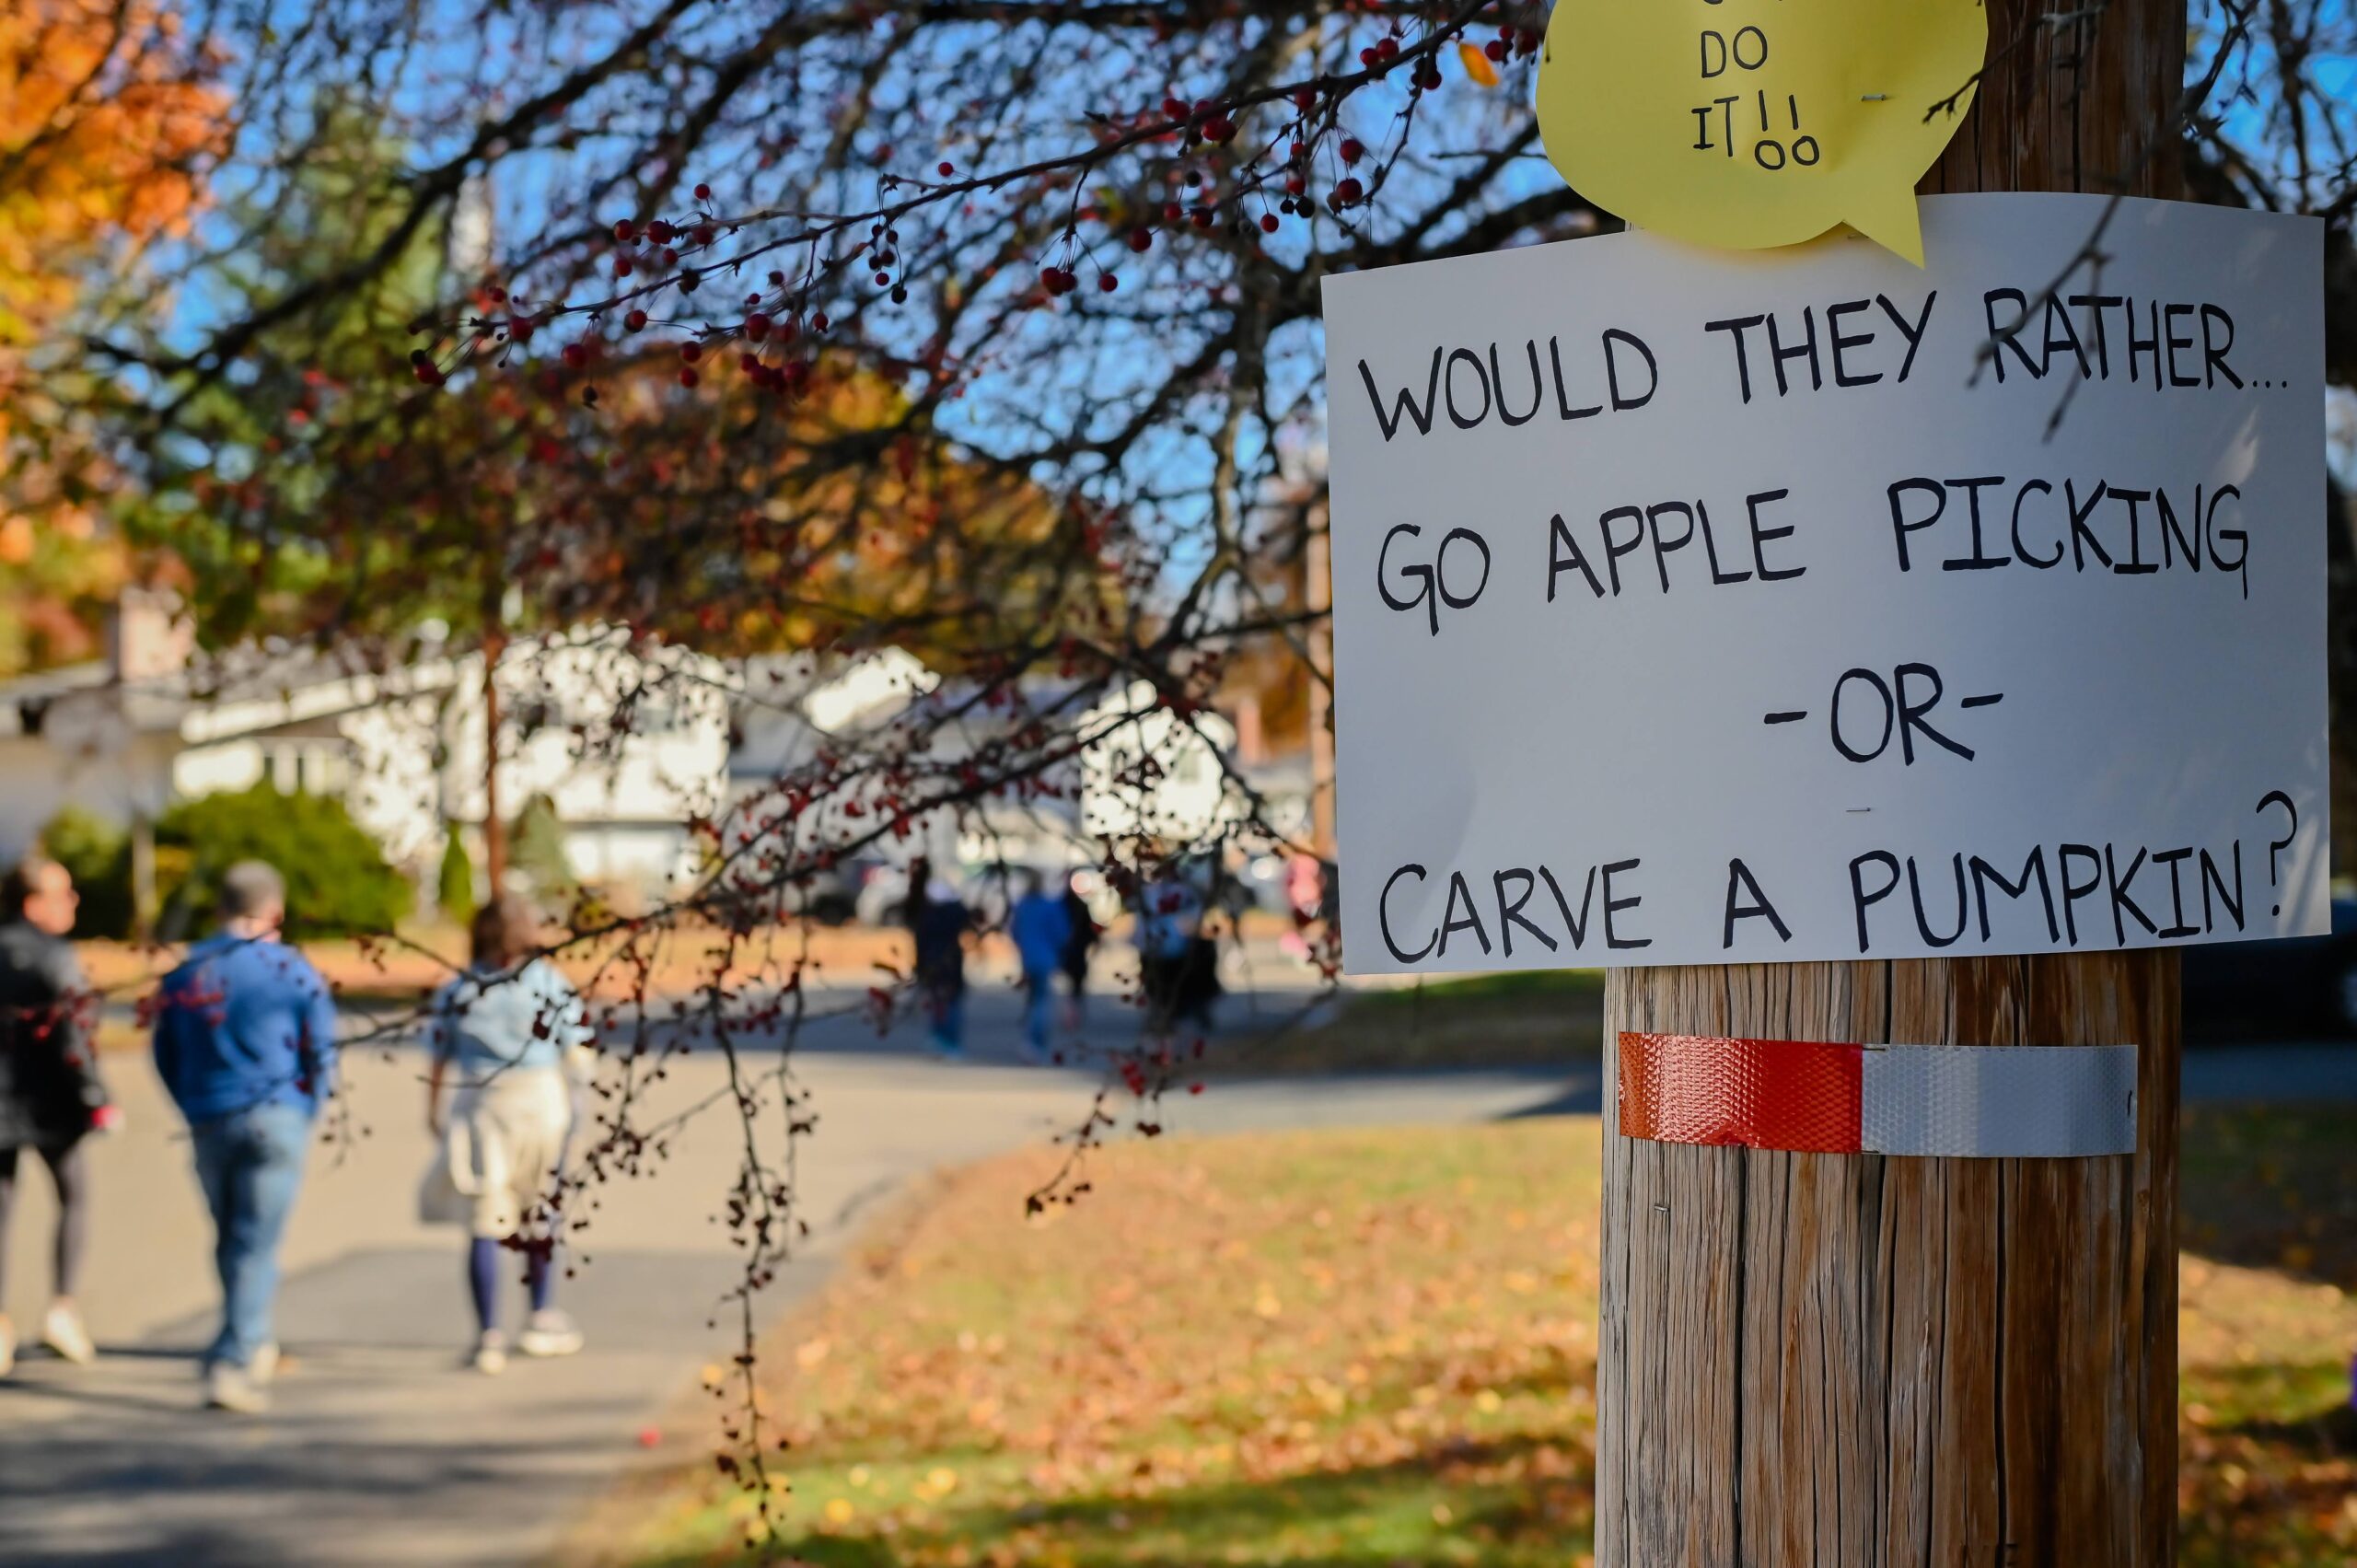 DO
IT!!
WOULD THEY RATHER...
GO APPLE PICKING
-OR-
CARVE A PUMPKIN?